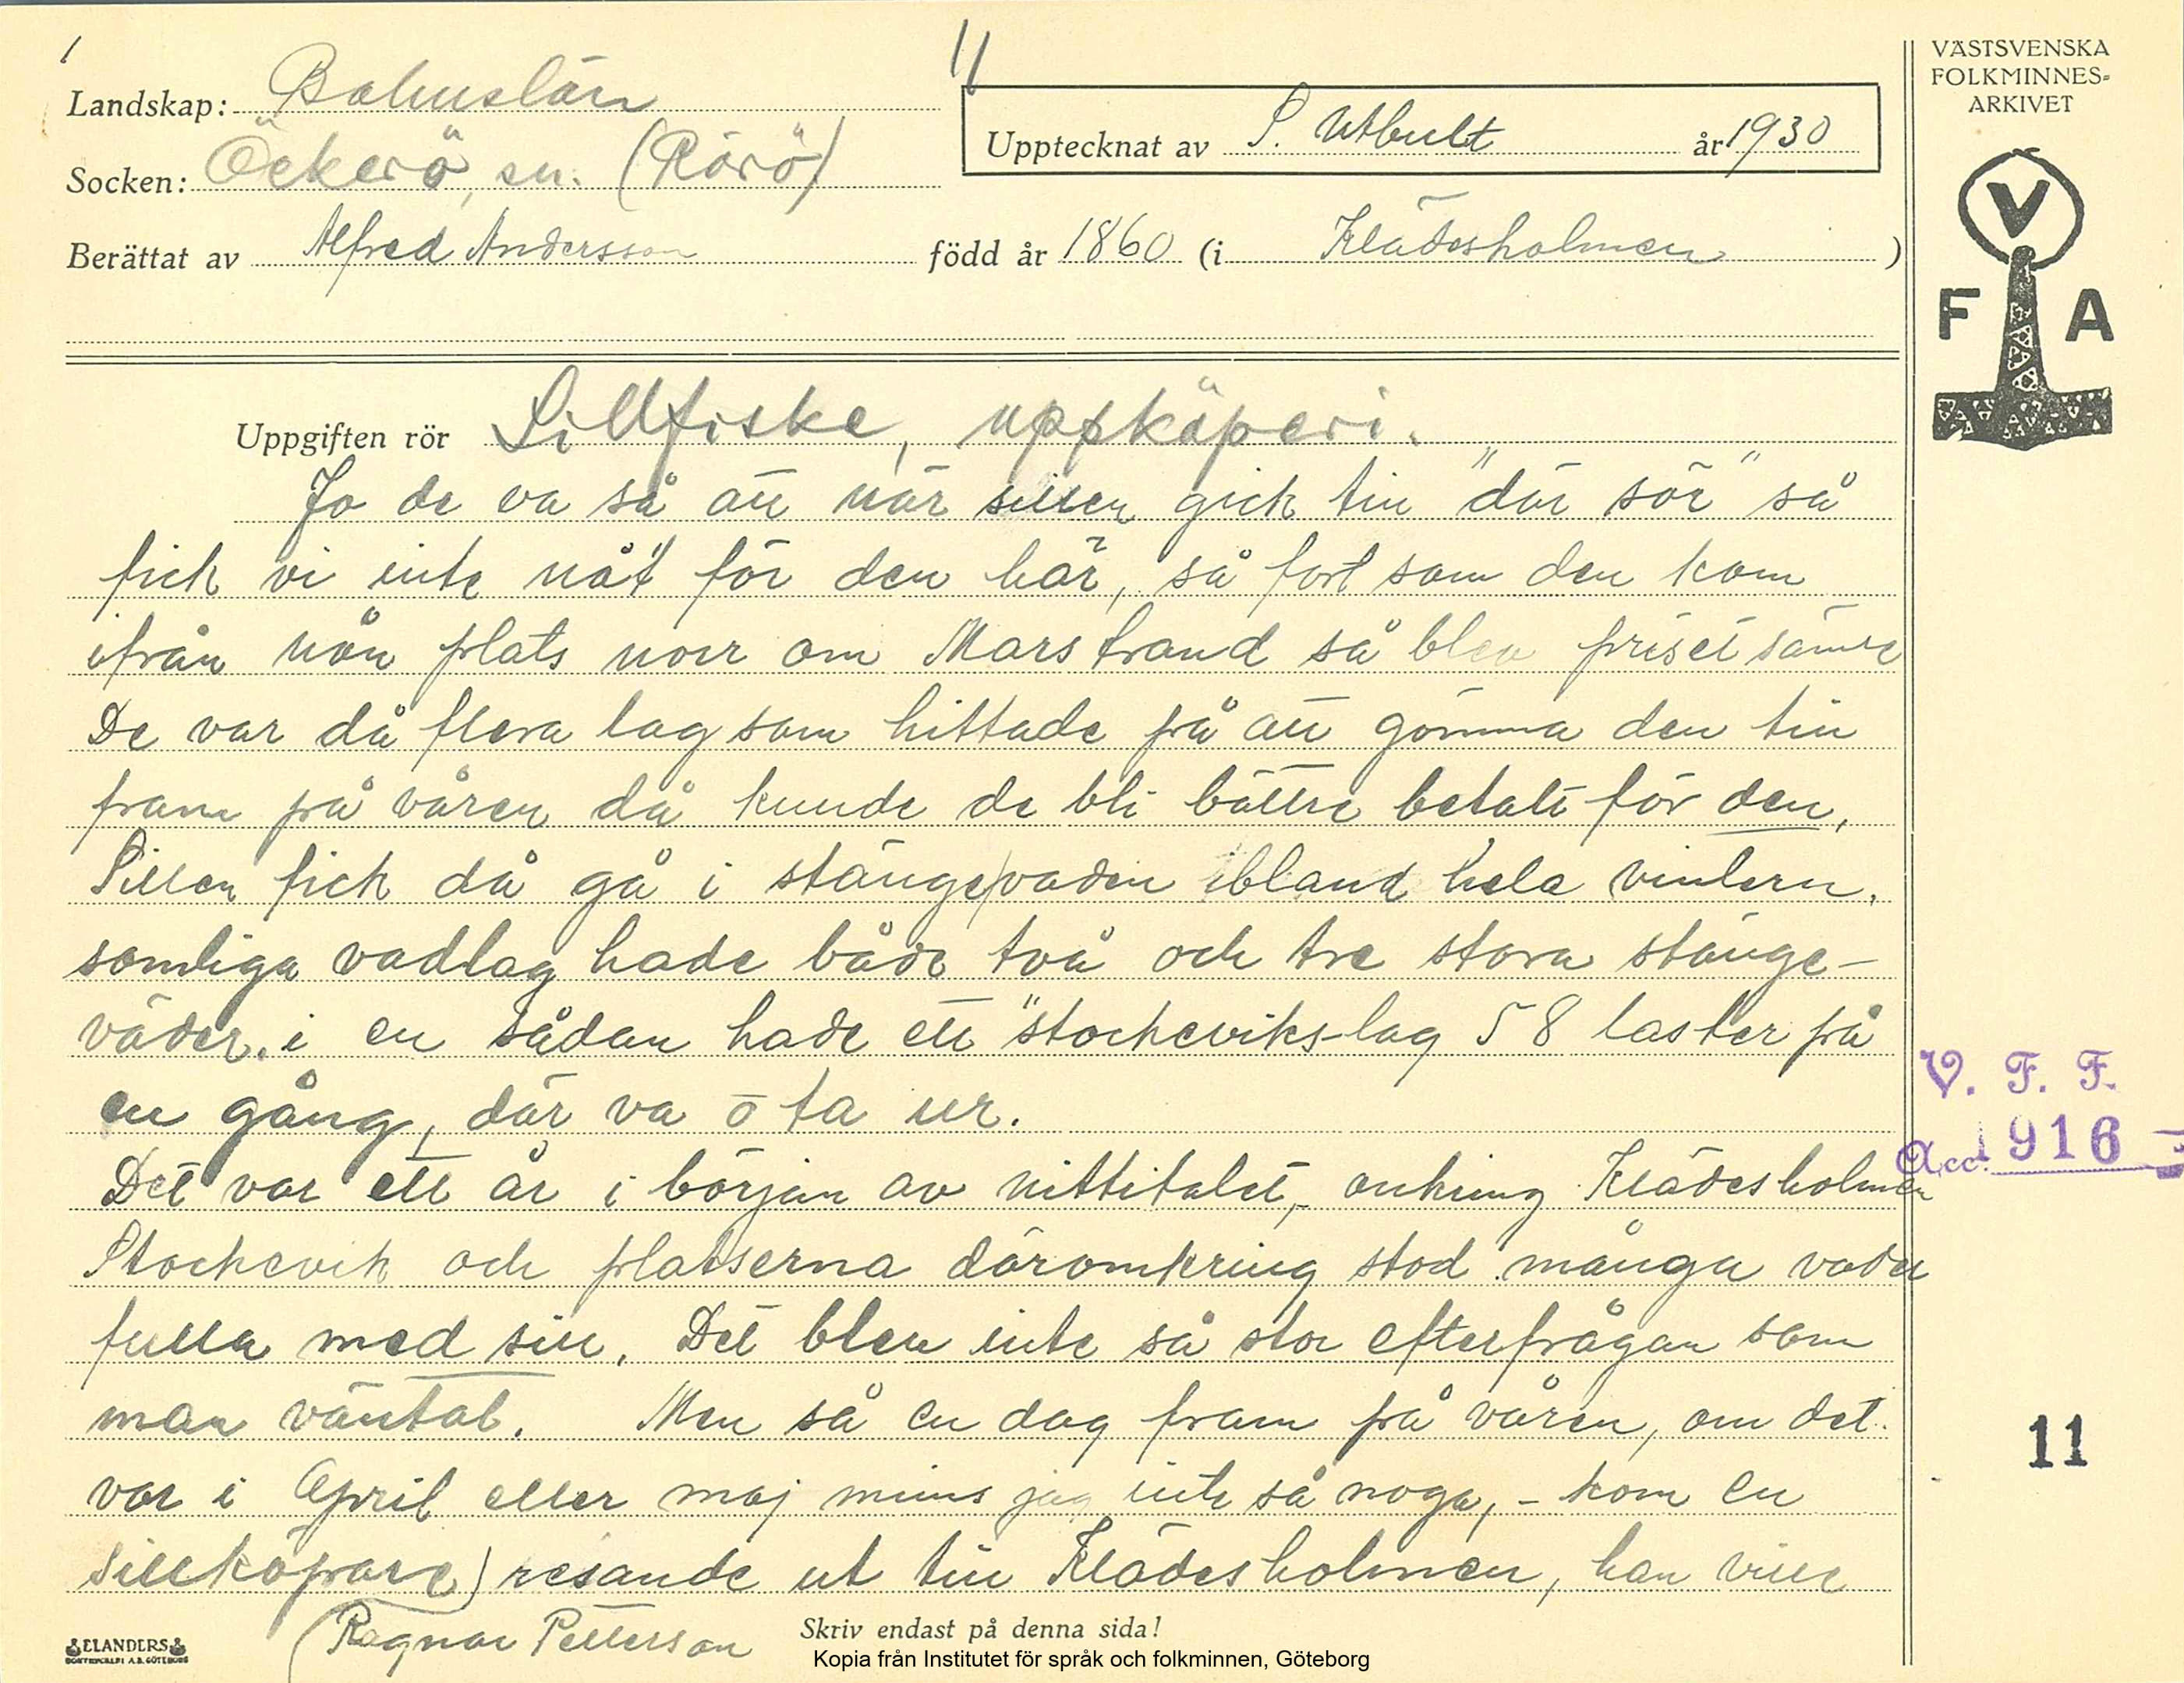 1
11
VÄSTSVENSKA
FOLKMINNES-
ARKIVET
Landskap: Bohuslän
Upptecknat av S. Utbult år 1930
Socken: Öckerö sn. (Rörö)
Berättat av Alfred Andersson född år 1860 (i Klädesholmen )
V
F A
Uppgiften rör Sillfiske, uppköperi.
Jo de va så att när sillen gick till "där sör" så
fick vi inte nåt för den här, så fort som den kom
ifrån nån plats norr om Marstrand så blev priset sämre
De var då flera lag som hittade på att gömma den till
fram på våren då kunde de bli bättre betalt för den,
Sillen fick då gå i stängevaden ibland hela vintern.
somliga vadlag hade både två och tre stora stänge-
vader. i en sådan hade ett "stockeviks-lag 58 laster på
en gång, där va o ta ur.
Det var ett år i början av nittitalet, omkring Klädesholmen
Stockevik och platserna däromkring stod många vader
fulla med sill. Det blev inte så stor efterfrågan som
man väntat. Men så en dag fram på våren, om det
var i April eller maj mins jag inte så noga, - kom en
sillköpare) resande ut till Klädesholmen, han ville
(Ragnar Petterson
V. F. F.
Acc. 1916
11
ELANDERS
Skriv endast på denna sida!
Kopia från Institutet för språk och folkminnen, Göteborg